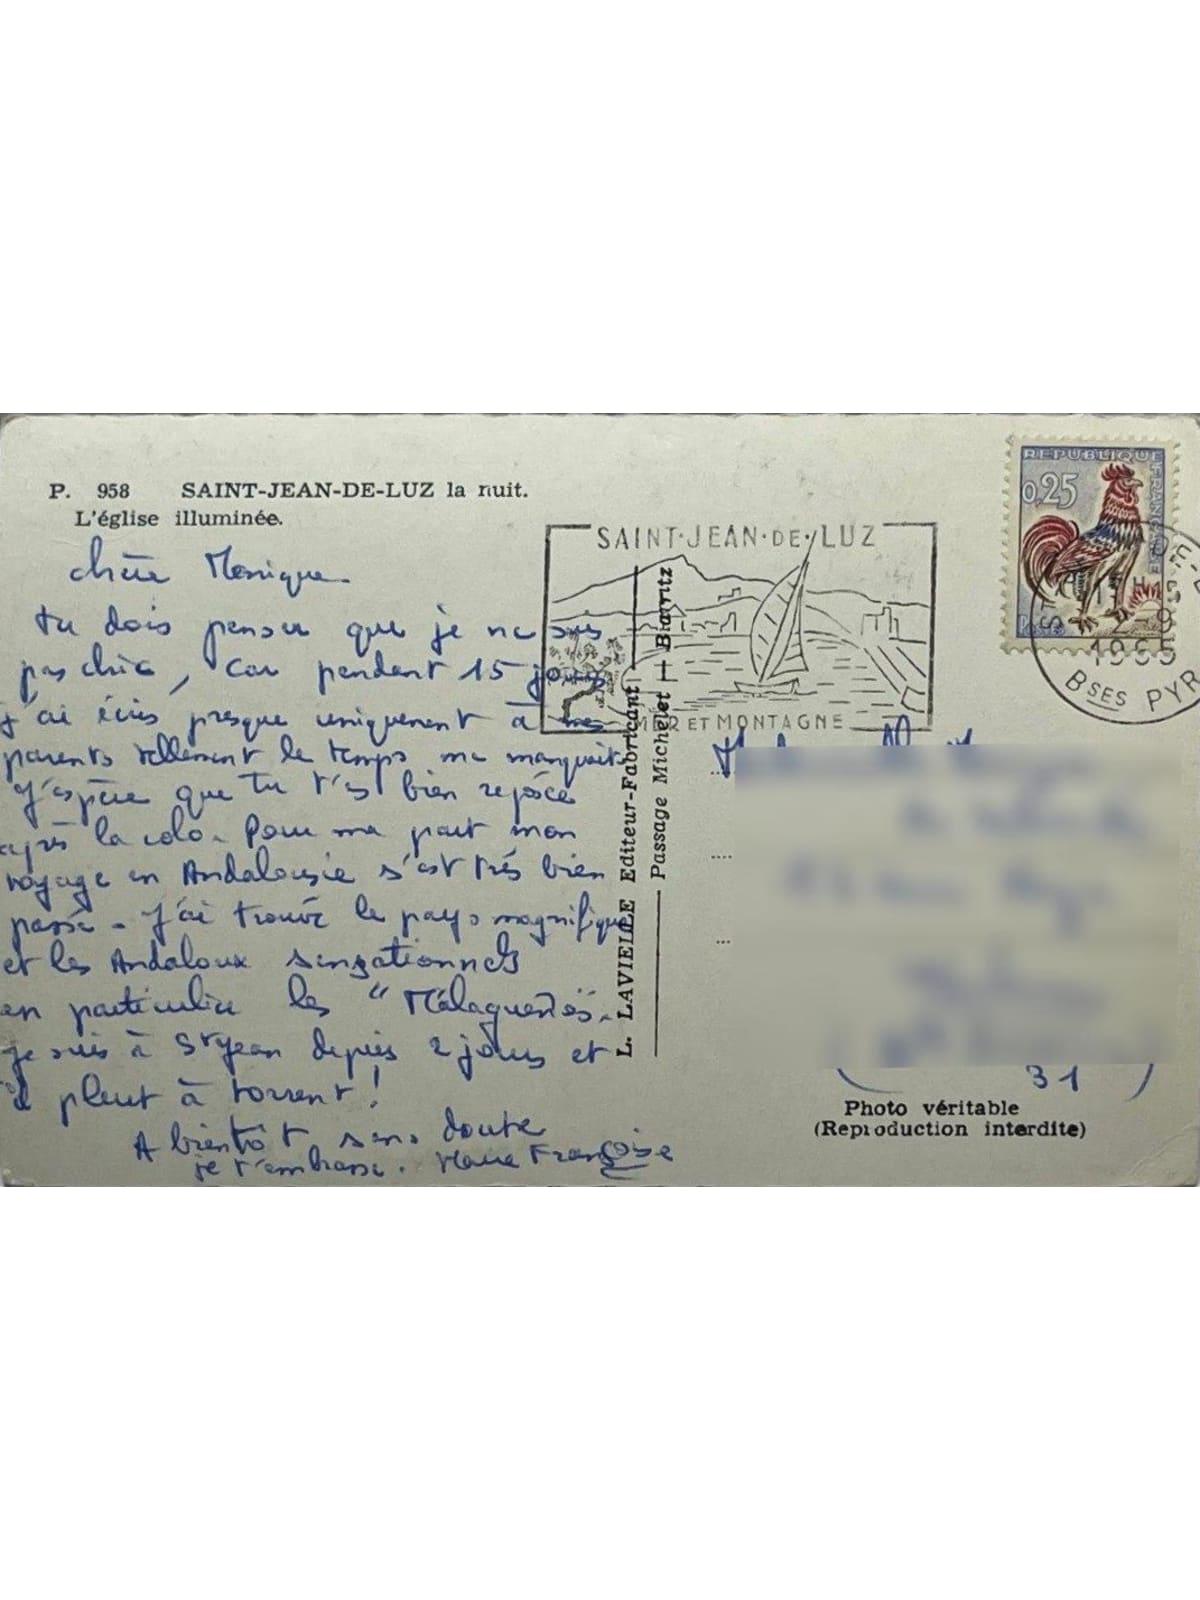 P. 958 SAINT-JEAN-DE-LUZ la nuit.
L'église illuminée.
Chère Monique
tu dois penser que je ne suis
pas chic, car pendant 15 jours
j'ai écris presque uniquement à mes
parents tellement le temps me manquait.
J'espère que tu t'es bien reposée
après la colo. Pour ma part mon
voyage en Andalousie s'est très bien
passé. J'ai trouvé le pays magnifique
et les Andaloux sensationnels
en particulier les "Malaguenos".
je suis à St Jean depuis 2 jours et
il pleut à torrent!
A bientôt sans doute
je t'embrasse. Marie Françoise
L. LAVIELLE Editeur-Fabricant
Passage Michelet - Biarritz
SAINT·JEAN·DE·LUZ
MER ET MONTAGNE
REPUBLIQUE FRANÇAISE
0,25
Postes
1965
BSES PYR
31
Photo véritable
(Reproduction interdite)